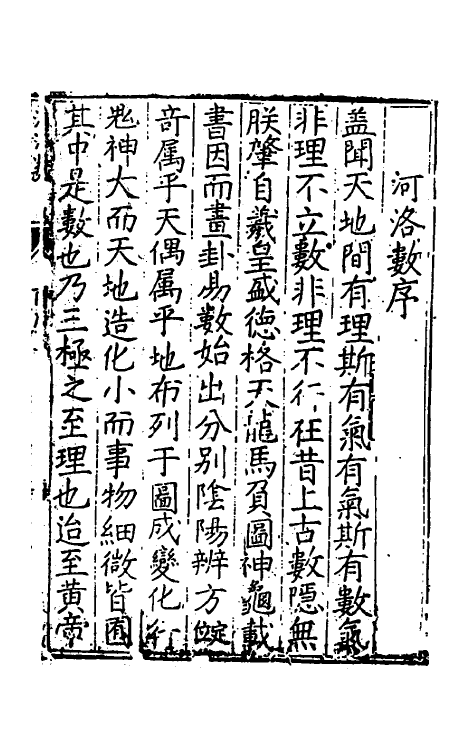 河洛數序
蓋聞天地間有理斯有氣有氣斯有數氣
非理不立數非理不行徃昔上古數隱無
朕肇自羲皇盛德格天龍馬負圖神龜載
書因而畫卦易數始出分別陰陽辨方定
奇属乎天偶属乎地布列于圖成變化行
鬼神大而天地造化小而事物細微皆囿
其中是數也乃三極之至理也迨至黄帝